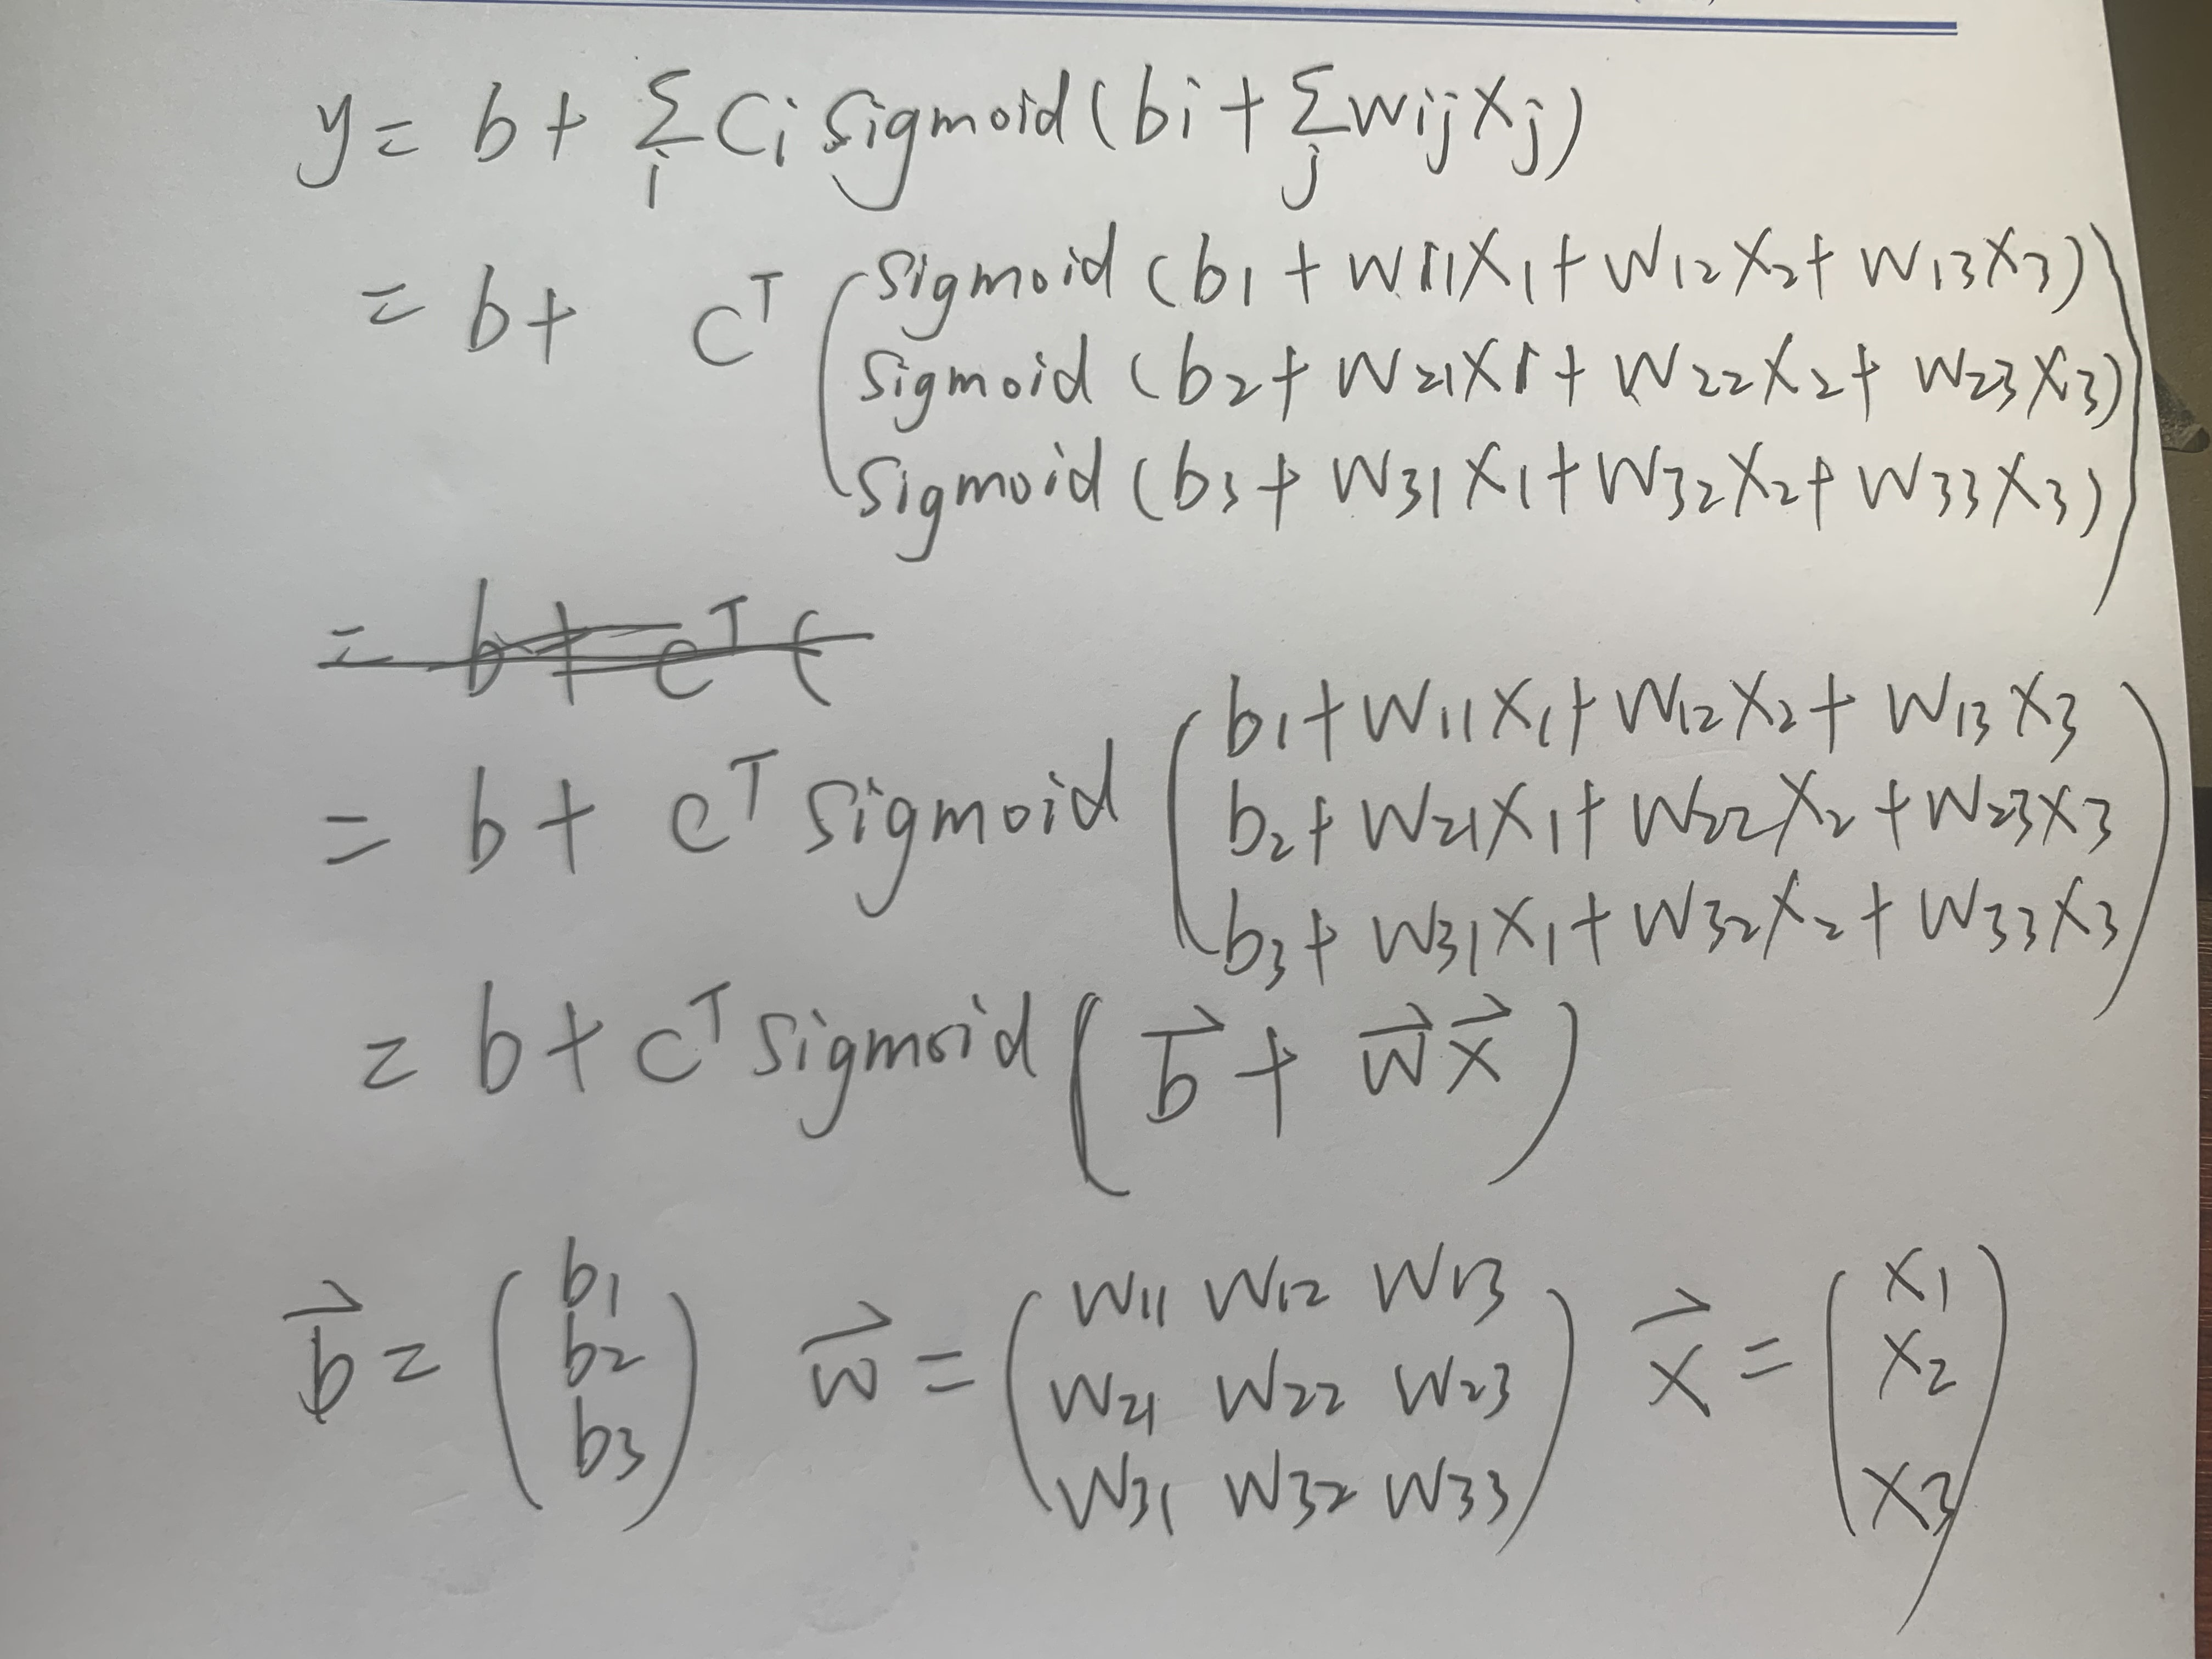 y = b + Σi Ci Sigmoid(bi + Σj wij xj)
= b + Cᵀ (Sigmoid(b1 + w11x1 + w12x2 + w13x3)
Sigmoid(b2 + w21x1 + w22x2 + w23x3)
Sigmoid(b3 + w31x1 + w32x2 + w33x3))
= b + Cᵀ (
= b + Cᵀ Sigmoid (b1 + w11x1 + w12x2 + w13x3
b2 + w21x1 + w22x2 + w23x3
b3 + w31x1 + w32x2 + w33x3)
= b + Cᵀ Sigmoid (b⃗ + w⃗x⃗)
b⃗ = (b1 w⃗ = (w11 w12 w13 x⃗ = (x1
b2 w21 w22 w23 x2
b3) w31 w23 w33) x3)